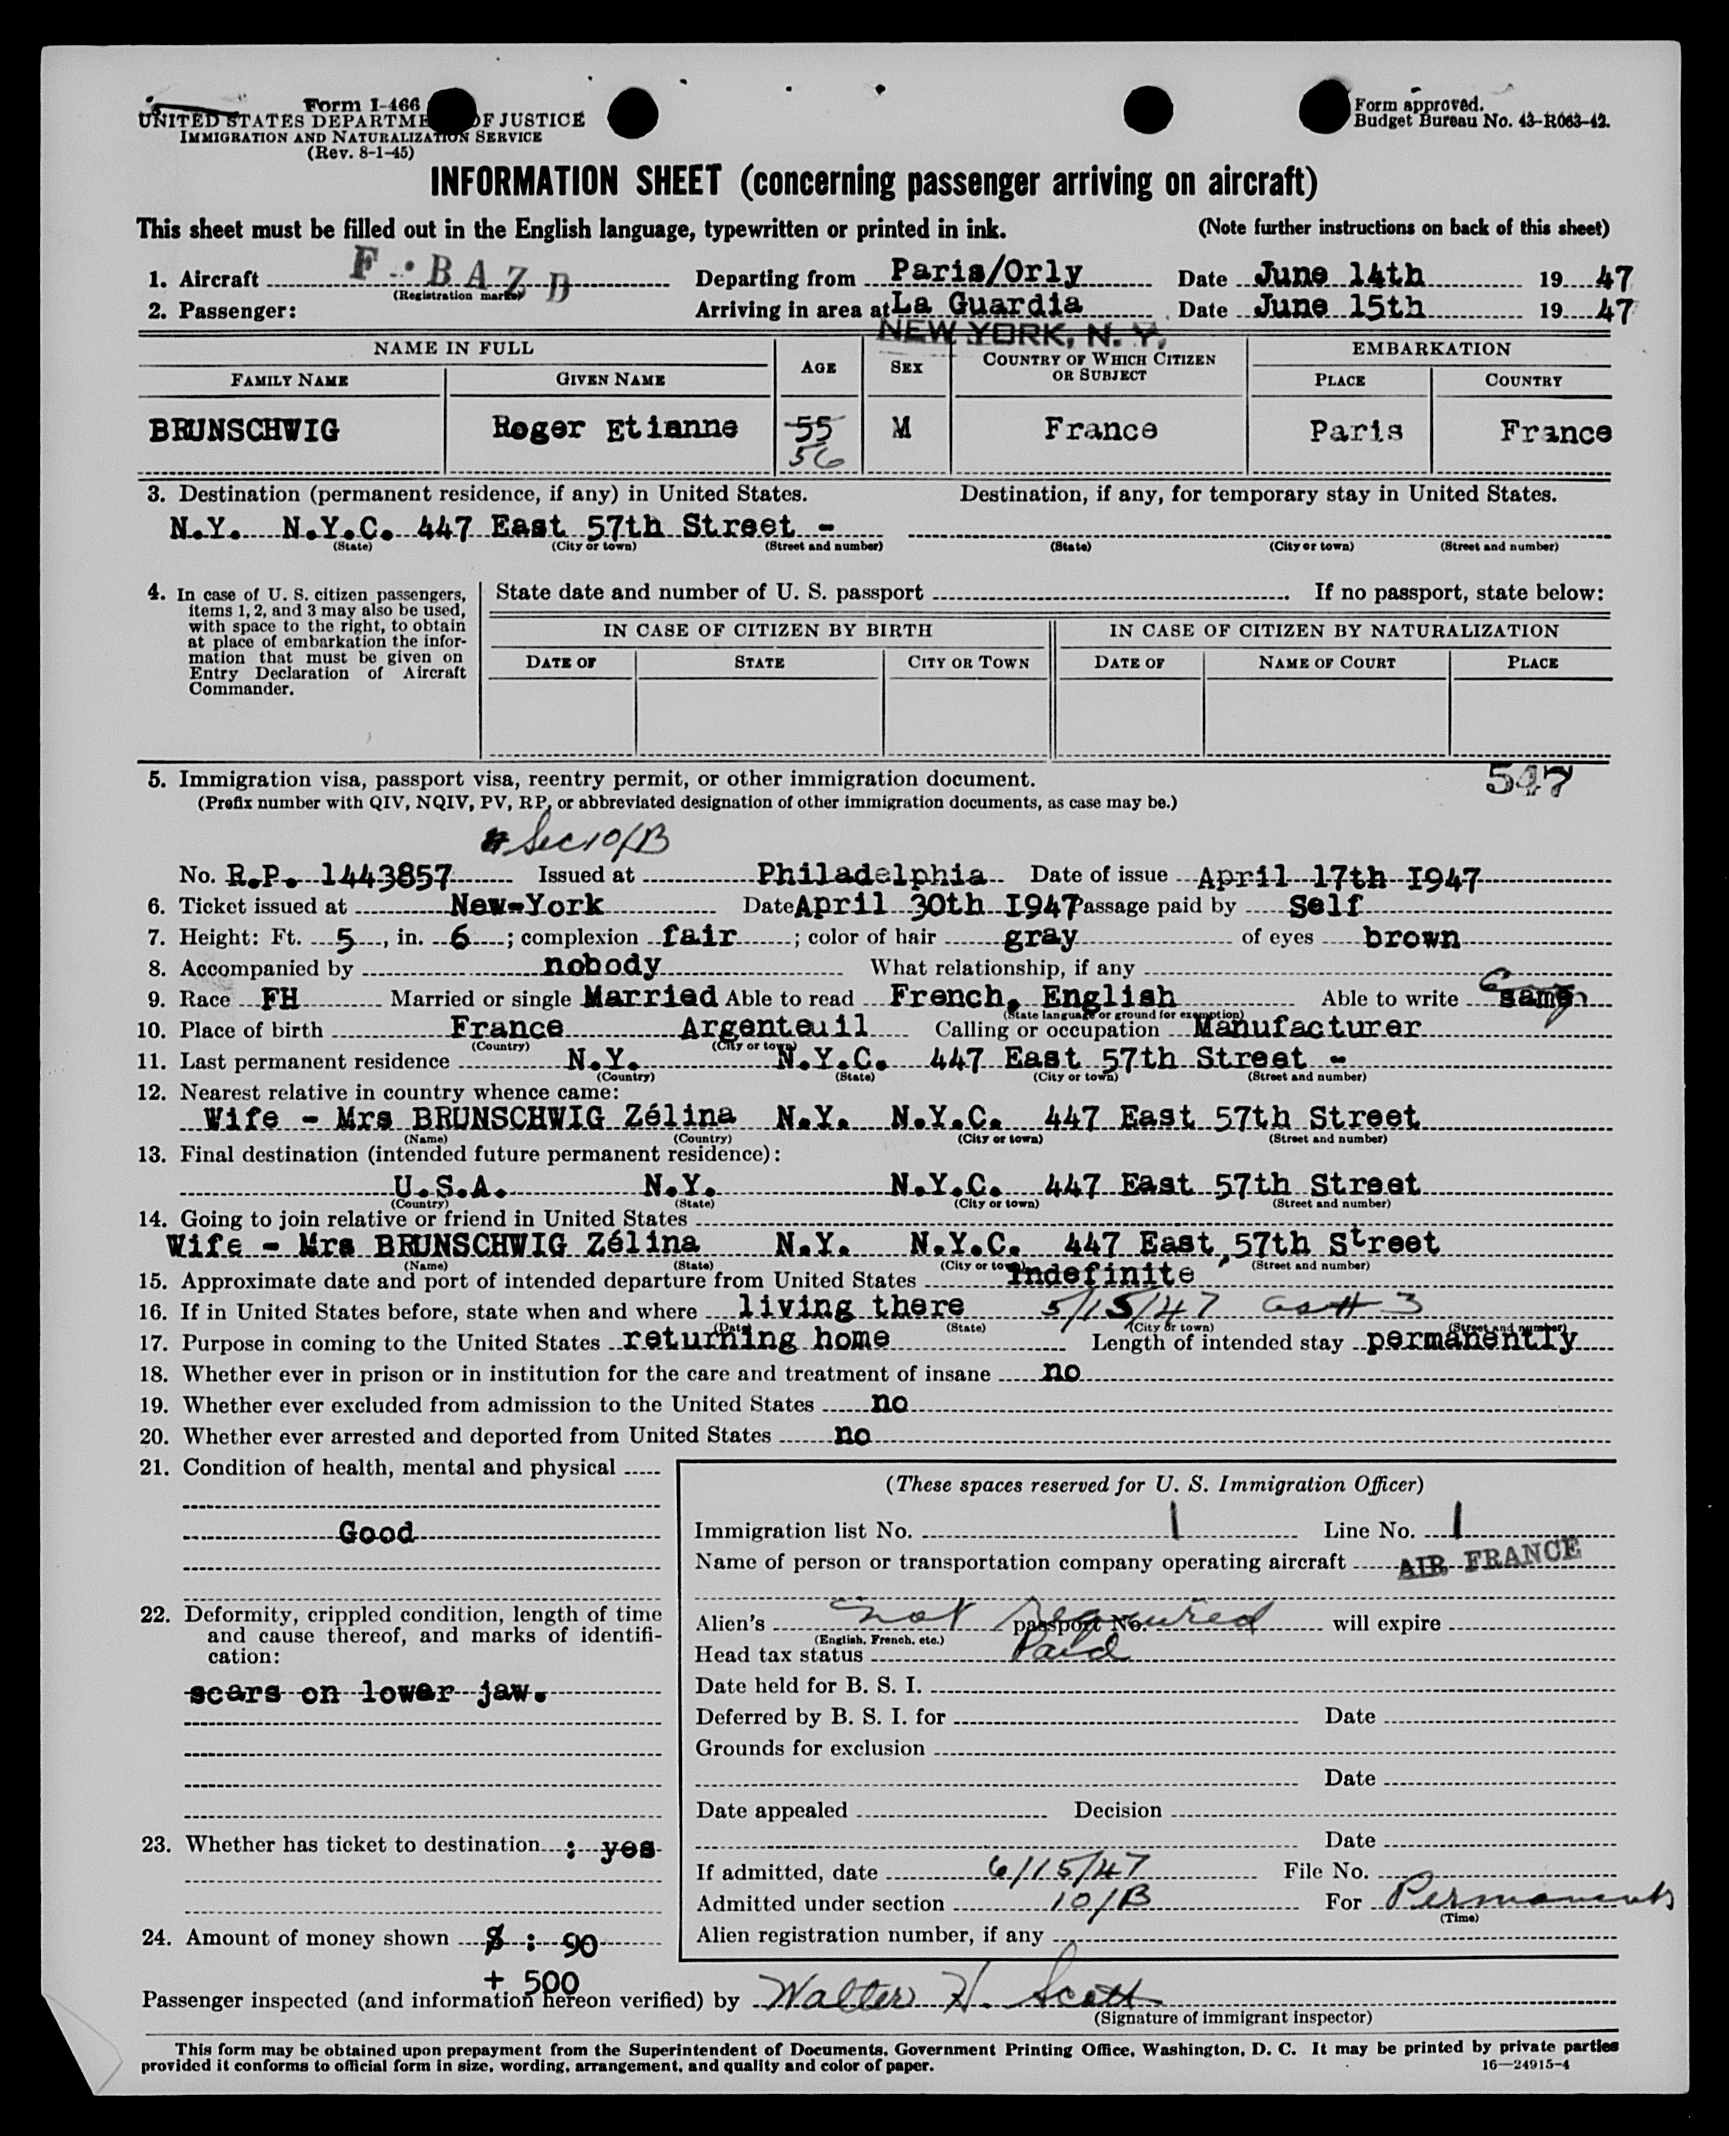 Form I-466
UNITED STATES DEPARTME OF JUSTICE
IMMIGRATION AND NATURALIZATION SERVICE
(Rev. 8-1-45)
Form approved.
Budget Bureau No. 43-R063-42.
INFORMATION SHEET (concerning passenger arriving on aircraft)
This sheet must be filled out in the English language, typewritten or printed in ink. (Note further instructions on back of this sheet)
1. Aircraft F · B A Z D Departing from Paris/Orly Date June 14th 19 47
(Registration marks)
2. Passenger: Arriving in area at La Guardia Date June 15th 19 47
NEW YORK, N. Y.
NAME IN FULL AGE SEX COUNTRY OF WHICH CITIZEN OR SUBJECT EMBARKATION
FAMILY NAME GIVEN NAME PLACE COUNTRY
BRUNSCHWIG Roger Etianne 55 M France Paris France
56
3. Destination (permanent residence, if any) in United States. Destination, if any, for temporary stay in United States.
N.Y. N.Y.C. 447 East 57th Street -
(State) (City or town) (Street and number) (State) (City or town) (Street and number)
4. In case of U. S. citizen passengers, items 1, 2, and 3 may also be used, with space to the right, to obtain at place of embarkation the information that must be given on Entry Declaration of Aircraft Commander.
State date and number of U. S. passport If no passport, state below:
IN CASE OF CITIZEN BY BIRTH IN CASE OF CITIZEN BY NATURALIZATION
DATE OF STATE CITY OR TOWN DATE OF NAME OF COURT PLACE
5. Immigration visa, passport visa, reentry permit, or other immigration document. 547
(Prefix number with QIV, NQIV, PV, RP, or abbreviated designation of other immigration documents, as case may be.)
Sec 10/B
No. R.P. 1443857 Issued at Philadelphia Date of issue April 17th I947
6. Ticket issued at New-York Date April 30th I947 Passage paid by Self
7. Height: Ft. 5, in. 6; complexion fair; color of hair gray of eyes brown
8. Accompanied by nobody What relationship, if any
9. Race FH Married or single Married Able to read French, English Able to write same
(State language or ground for exemption)
10. Place of birth France Argenteuil Calling or occupation Manufacturer
(Country) (City or town)
11. Last permanent residence N.Y. N.Y.C. 447 East 57th Street -
(Country) (State) (City or town) (Street and number)
12. Nearest relative in country whence came:
Wife - Mrs BRUNSCHWIG Zélina N.Y. N.Y.C. 447 East 57th Street
(Name) (Country) (City or town) (Street and number)
13. Final destination (intended future permanent residence):
U.S.A. N.Y. N.Y.C. 447 East 57th Street
(Country) (State) (City or town) (Street and number)
14. Going to join relative or friend in United States
Wife - Mrs BRUNSCHWIG Zélina N.Y. N.Y.C. 447 East 57th Street
(Name) (State) (City or town) (Street and number)
15. Approximate date and port of intended departure from United States Indefinite
16. If in United States before, state when and where living there 5/15/47
(Date) (State) (City or town) (Street and number)
17. Purpose in coming to the United States returning home Length of intended stay permanently
18. Whether ever in prison or in institution for the care and treatment of insane no
19. Whether ever excluded from admission to the United States no
20. Whether ever arrested and deported from United States no
21. Condition of health, mental and physical
Good
22. Deformity, crippled condition, length of time and cause thereof, and marks of identification:
scars on lower jaw.
23. Whether has ticket to destination : yes
24. Amount of money shown $ : 90
+ 500
(These spaces reserved for U. S. Immigration Officer)
Immigration list No. 1 Line No. 1
Name of person or transportation company operating aircraft AIR FRANCE
Alien's not required passport No. will expire
(English, French, etc.)
Head tax status Paid
Date held for B. S. I.
Deferred by B. S. I. for Date
Grounds for exclusion
Date
Date appealed Decision
Date
If admitted, date 6/15/47 File No.
Admitted under section 10/B For Permanently
(Time)
Alien registration number, if any
Passenger inspected (and information hereon verified) by Walter H. Scott
(Signature of immigrant inspector)
This form may be obtained upon prepayment from the Superintendent of Documents, Government Printing Office, Washington, D. C. It may be printed by private parties
provided it conforms to official form in size, wording, arrangement, and quality and color of paper. 16—24915-4